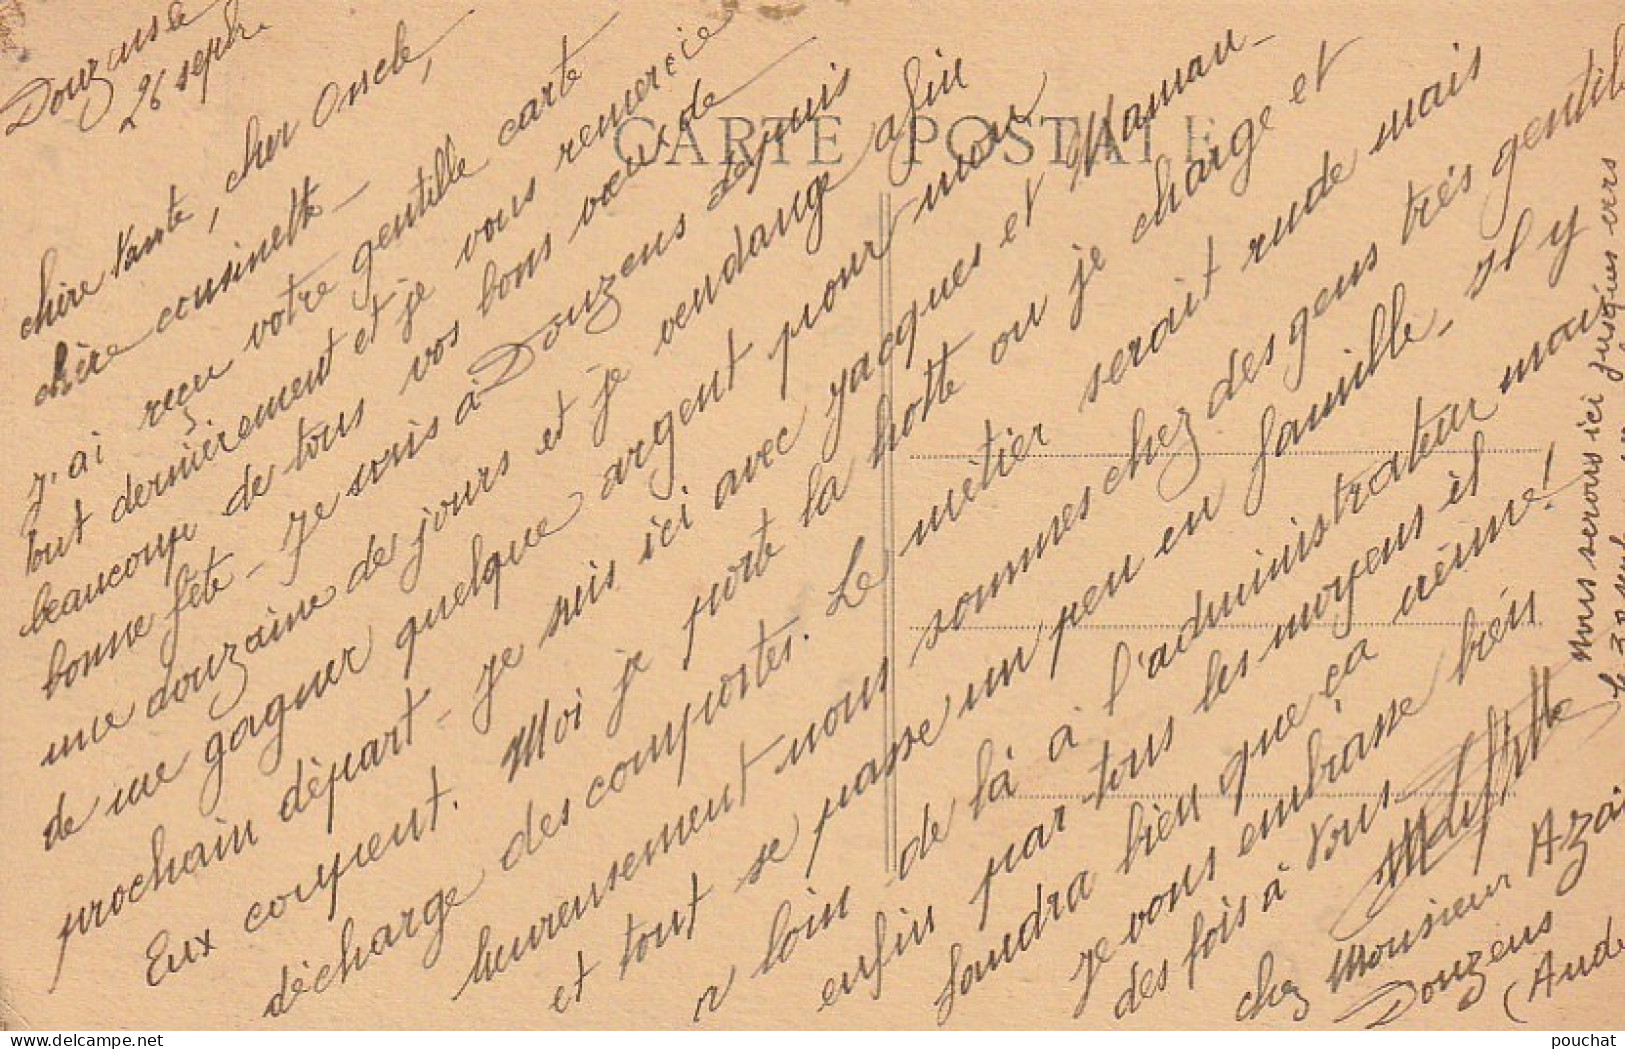 Douzens le
26 septbre
CARTE POSTALE
chère tante, cher Oncle,
chère cousinette -
J'ai reçu votre gentille carte
tout dernièrement et je vous remercie
beaucoup de tous vos bons voeux de
bonne fête - Je suis à Douzens depuis
une douzaine de jours et je vendange afin
de me gagner quelque argent pour mon
prochain départ - Je suis ici avec Jacques et Maman -
Eux coupent. Moi je porte la hotte ou je charge et
décharge des comportes. Le métier serait rude mais
heureusement nous sommes chez des gens très gentils
et tout se passe un peu en famille - Il y
a loin de là à l'administrateur mais
enfin par tous les moyens il
faudra bien que ça vienne!
Je vous embrasse bien
des fois à tous
chez Monsieur Azaï
Douzens
(Aude
Nous serons ici jusques vers
le 30 sept
pouchat